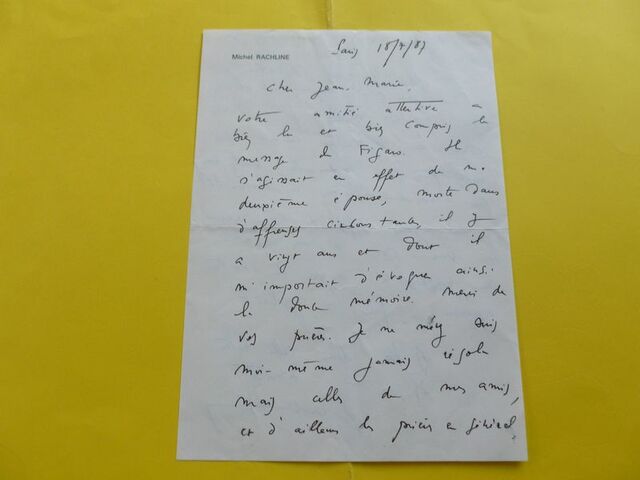 Michel RACHLINE
Paris 18/7/87
Cher Jean-Marie,
votre amitié attentive a
bien lu et bien compris le
message du Figaro. Il
s'agissait en effet de ma
deuxième épouse, morte dans
d'affreuses circonstances, il y
a vingt ans et dont il
m'importait d'évoquer ainsi
la mémoire. Merci de
vos prières. Je ne m'y suis
moi-même jamais résolu
mais celles de mes amis,
et d'ailleurs les prières en général,